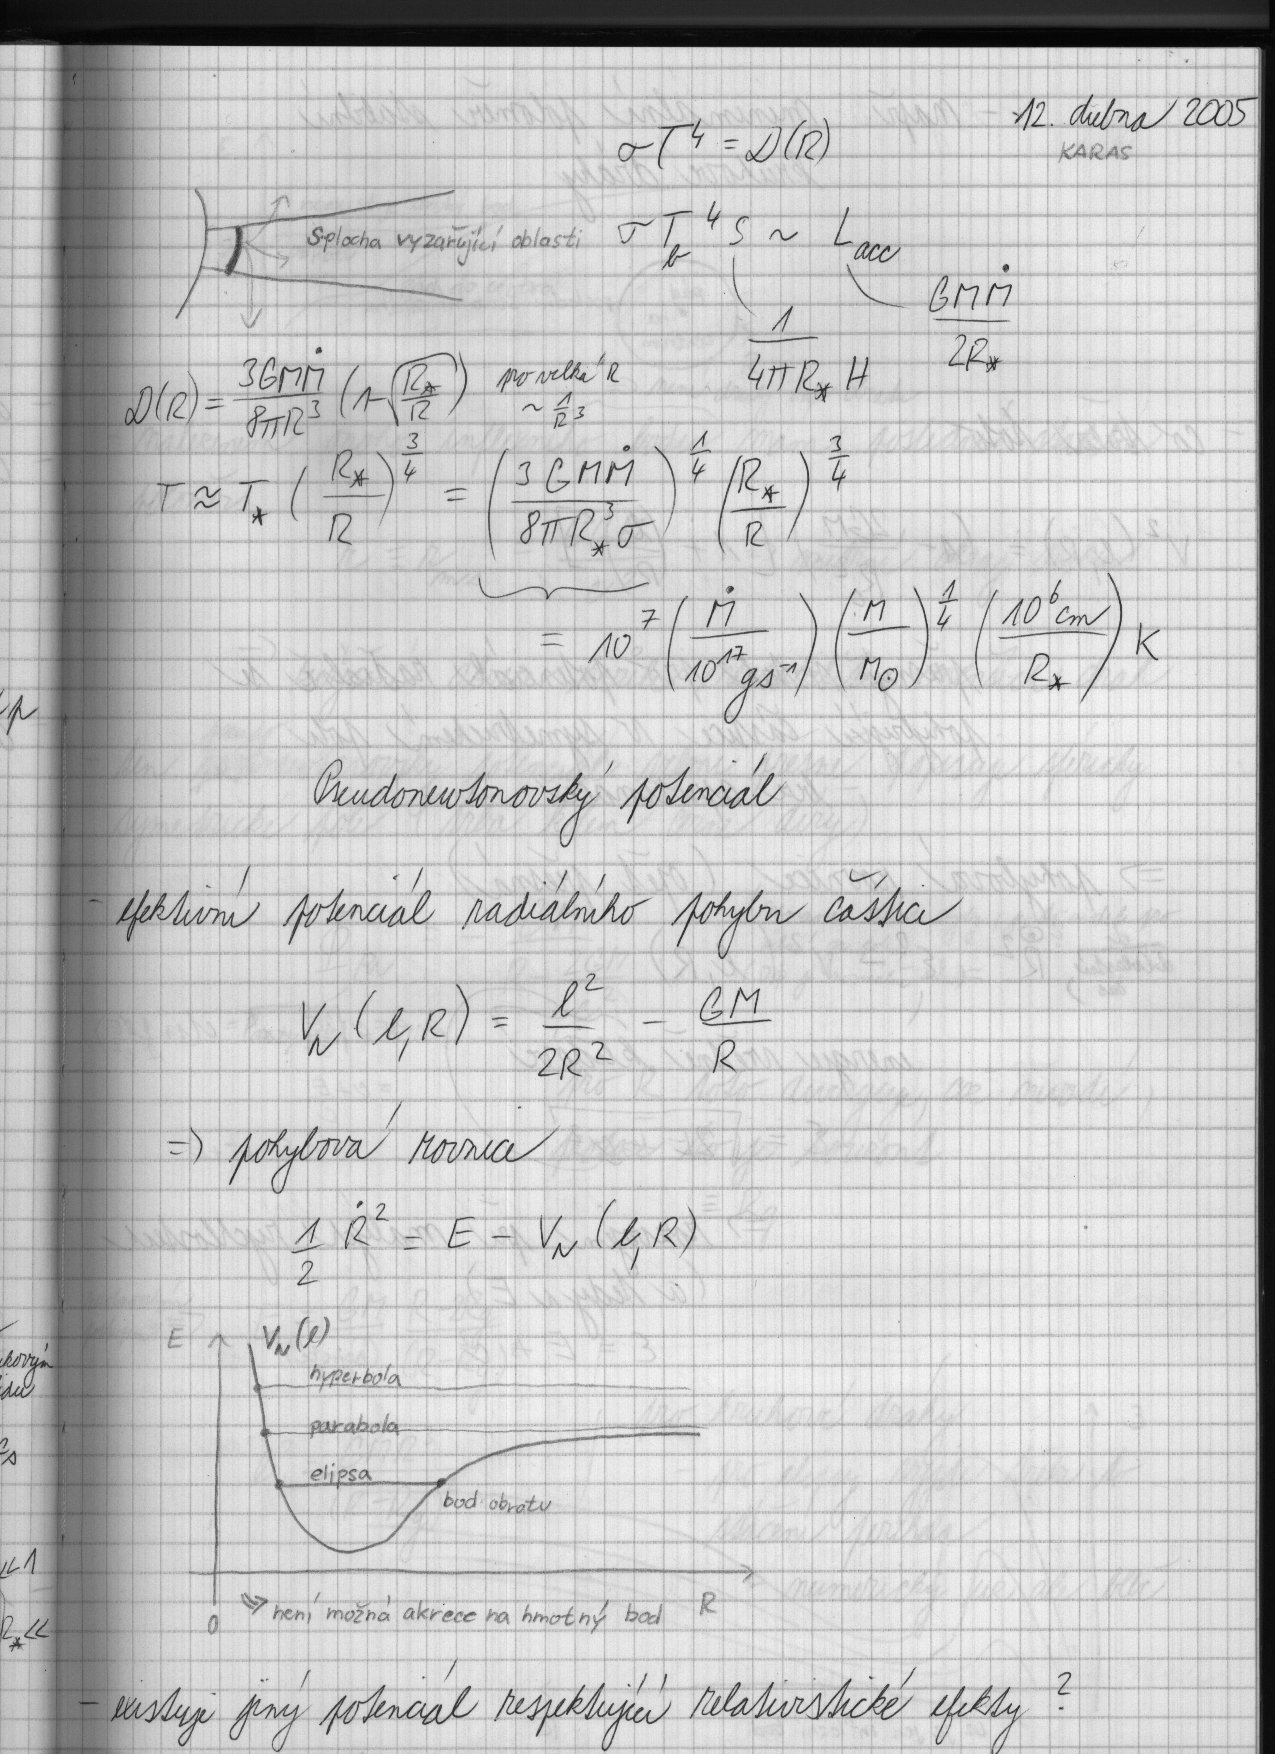 12. dubna 2005
KARAS
σT⁴ = D(R)
S plocha vyzařující oblasti
σT_b⁴ S ~ L_acc
1/(4πR_* H)
GMṀ/(2R_*)
D(R) = 3GMṀ/(8πR³) (1-√(R_*/R)) pro velká R ~ 1/R³
T ≈ T_* (R_*/R)^(3/4) = (3GMṀ/(8πR_*³σ))^(1/4) (R_*/R)^(3/4)
= 10⁷ (Ṁ/(10¹⁷ gs⁻¹)) (M/M_⊙)^(1/4) (10⁶cm/R_*) K
Pseudonewtonovský potenciál
- efektivní potenciál radiálního pohybu částice
V_N (l, R) = l²/(2R²) - GM/R
=> pohybová rovnice
1/2 Ṙ² = E - V_N (l, R)
E
V_N(l)
hyperbola
parabola
elipsa
bod obratu
0
=> není možná akrece na hmotný bod
R
- existuje jiný potenciál respektující relativistické efekty ?